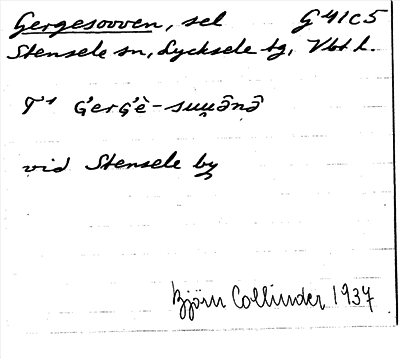 Gergesovven, sel G 41 c 5
Stensele sn, Lycksele tg, Vbt l.
vid Stensele by
Björn Collinder 1937